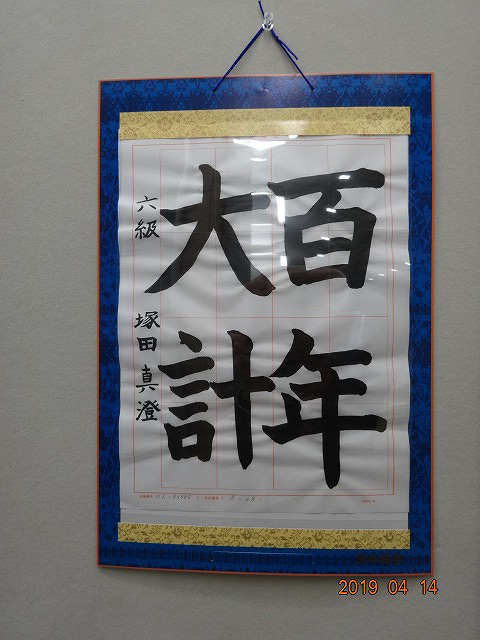 百年
大計
六級 塚田真澄
2019 04 14